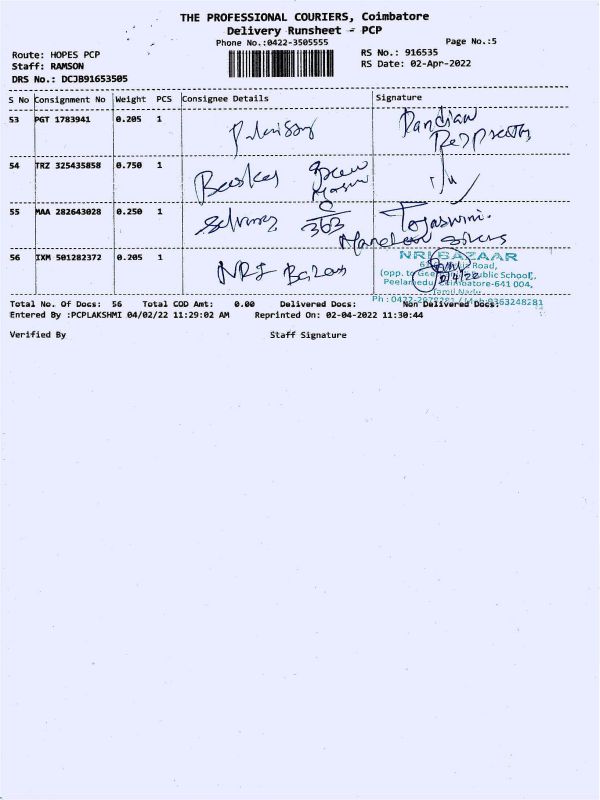 THE PROFESSIONAL COURIERS, Coimbatore
Delivery Runsheet - PCP
Phone No.:0422-3505555
Page No.:5
Route: HOPES PCP
RS No.: 916535
Staff: RAMSON
RS Date: 02-Apr-2022
DRS No.: DCJB91653505
S No Consignment No Weight PCS Consignee Details Signature
53 PGT 1783941 0.205 1 Pandian
54 TRZ 325435858 0.750 1
55 MAA 282643028 0.250 1 363 Tejaswini.
56 IXM 501282372 0.205 1 NRI Bazaar
NRI BAZAAR
Road,
(opp. to Public School,
Peelamedu, Coimbatore-641 004,
Tamil Nadu
2/4/22
Total No. Of Docs: 56 Total COD Amt: 0.00 Delivered Docs: Non Delivered Docs:
Entered By :PCPLAKSHMI 04/02/22 11:29:02 AM Reprinted On: 02-04-2022 11:30:44
Verified By Staff Signature